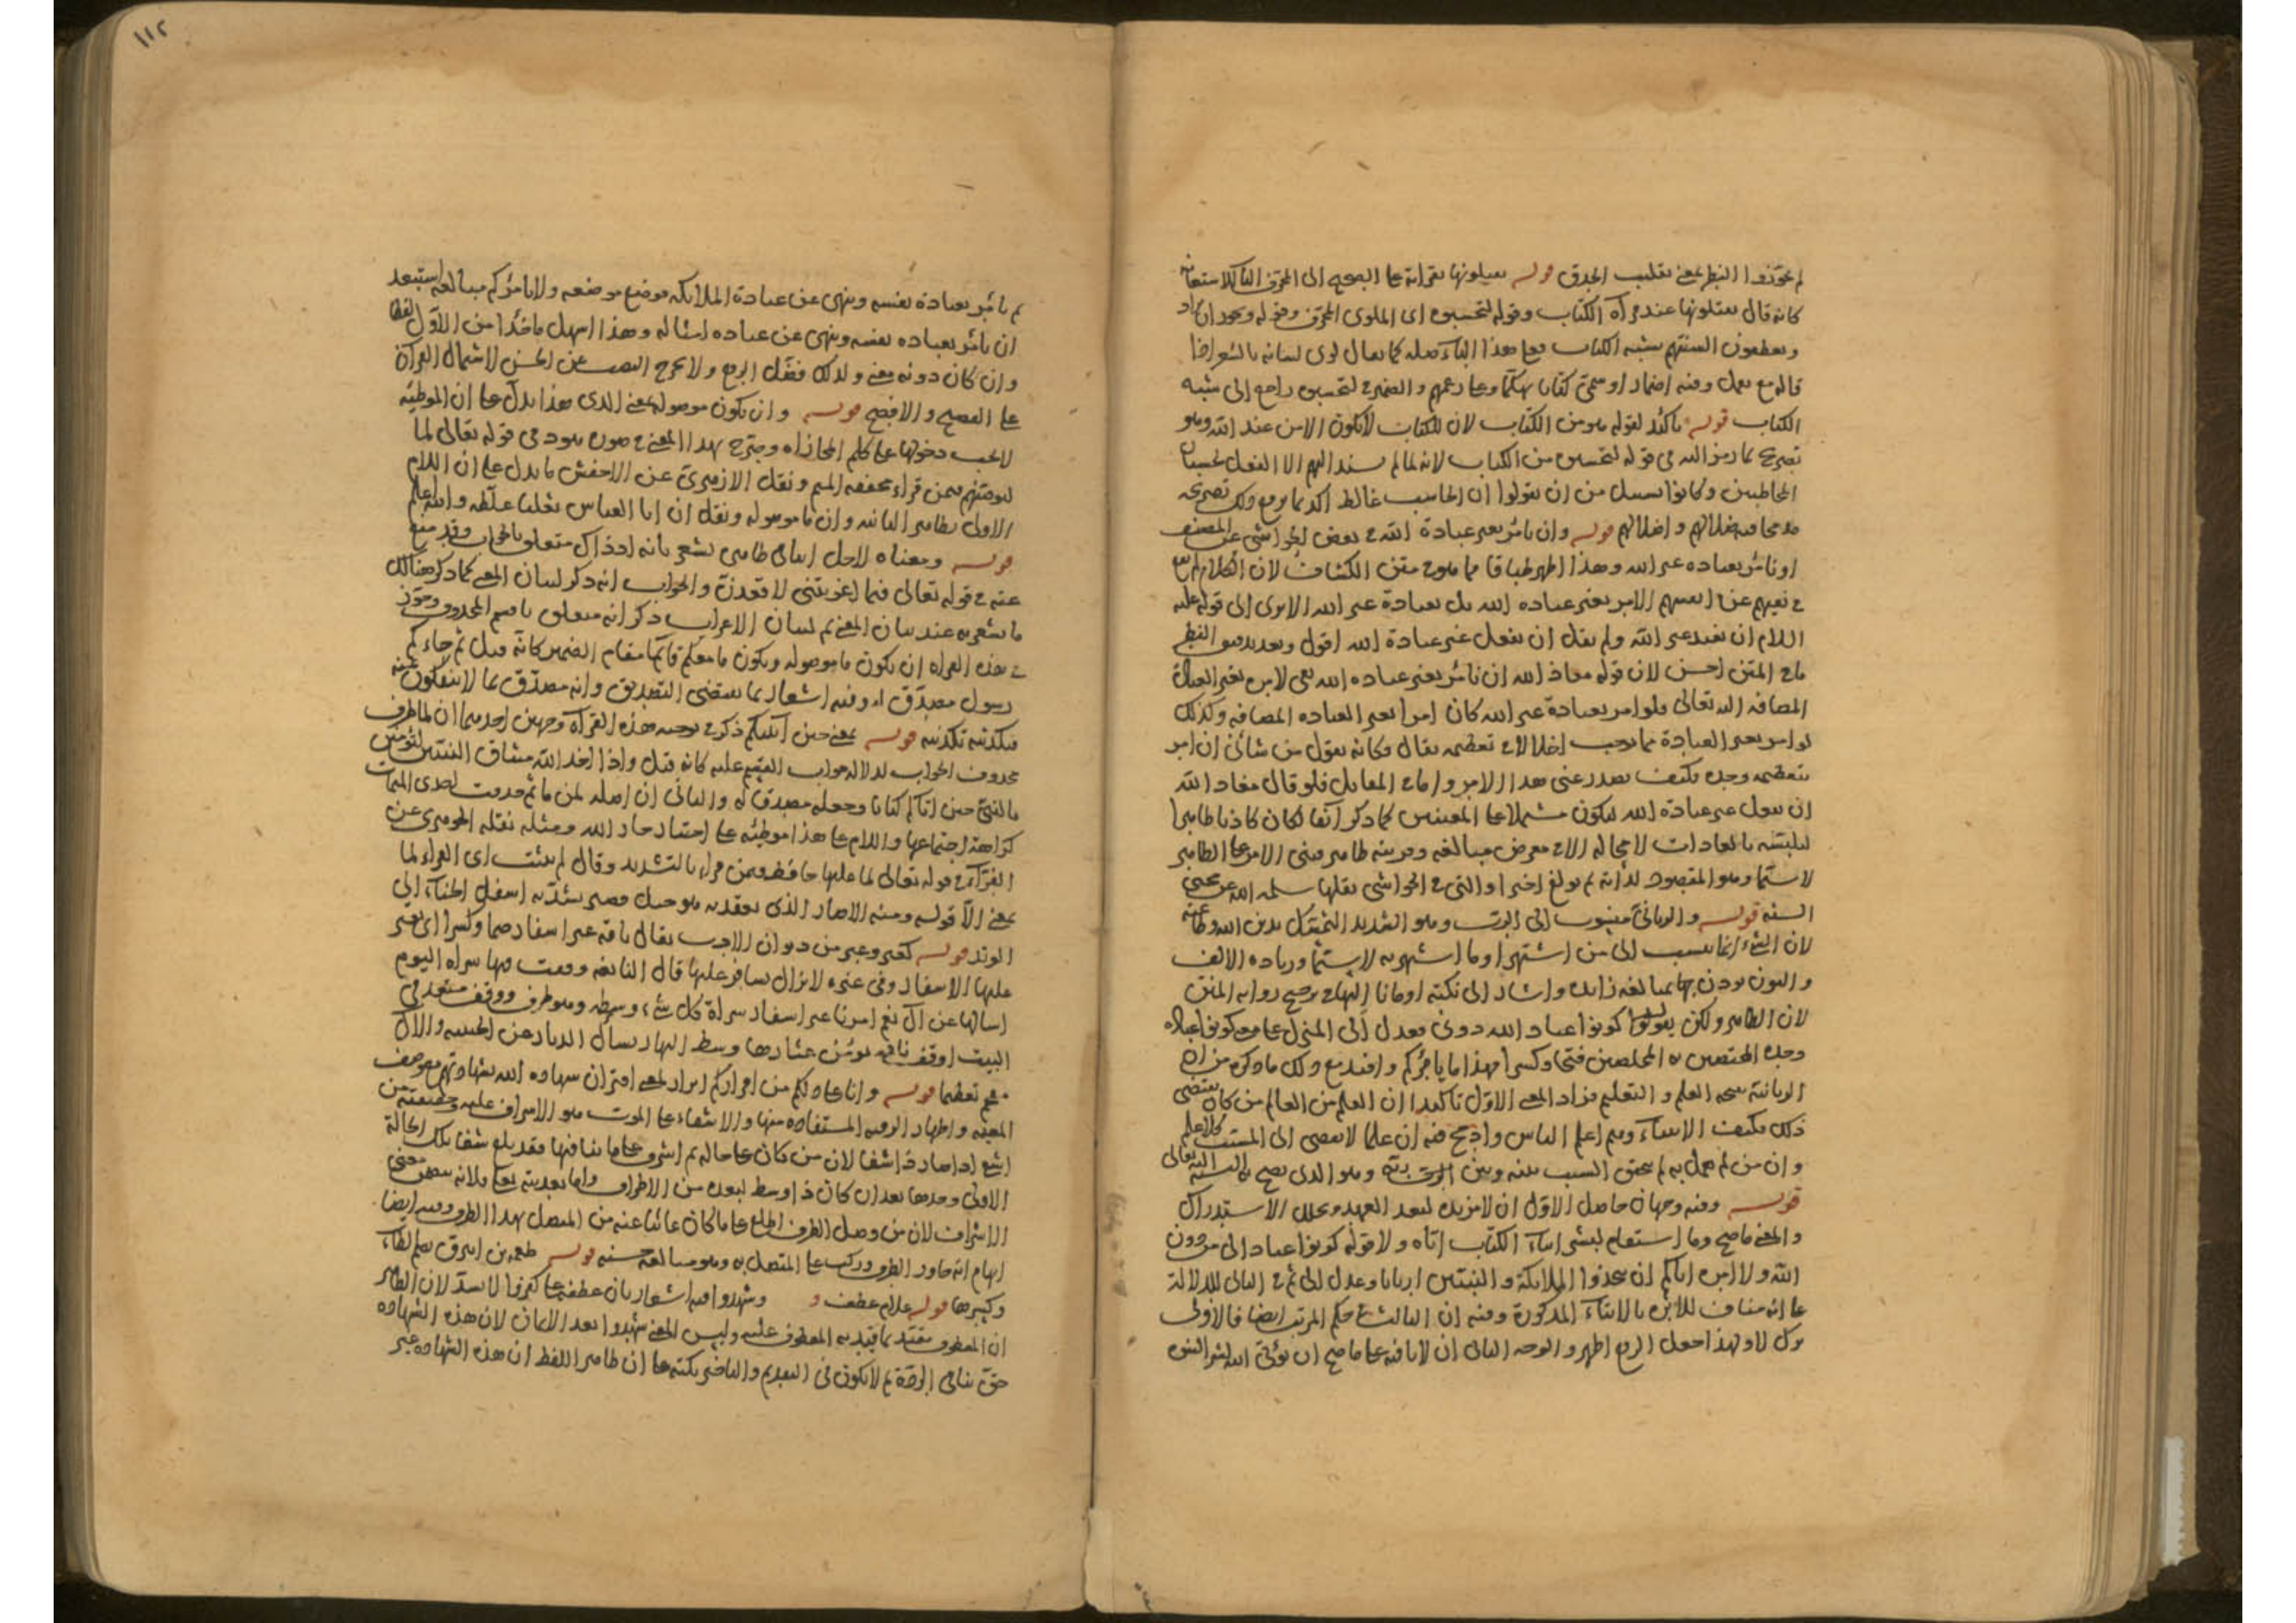 لم يجوزوا النظر بمعنى تقليب الحدق قوله يميلونها بقراءته عن الصحيح الى المحرف الباء للاستعانة
كانه قال يفتلونها عند قراءة الكتاب وقوله لتحسبوه اى الملوى المحرف وقوله ويجوز ان يراد
ويعطفون السنتهم بشبه الكتاب فعلى هذا الباء صلة كما يقال لوى لسانه بالشعر اضا
الكتاب قوله تأكيد لقوله هو من الكتاب لان الكتاب لا يكون الا من عند الله وهو
تصريح بما رمز اليه فى قوله لتحسبوه من الكتاب لانه لما لم يسند اليهم الا الفعل لحسبان
المخاطبين وكانوا بسبيل من ان يقولوا ان الحاسب غالط اكد بما يرفع ذلك تصريحه
قوله وان نأمر بغير عبادة الله فى بعض الحواشى عن المصنف
او نأمر بعبادة غير الله وهذا اظهر طباقا مما هو فى متن الكشاف لان الكلام لم يقع
فى نفيهم عن انفسهم الامر بغير عبادة الله بل بعبادة غير الله الا يرى الى قوله عليه
السلام ان نعبد غير الله ولم يقل ان نفعل غير عبادة الله اقول وبعد تدقيق النظر
ما فى المتن احسن لان قوله معاذ الله ان نأمر بغير عبادة الله نفى لامره بغير العبادة
المضافة الى الله تعالى فلو امر بعبادة غير الله كان امرا بغير العبادة المضافة وكذلك
لو امر بغير العبادة مما يوجب اخلالا فى تعظيمه تعالى وكانه يقول من شأنى ان امر
بتعظيمه وحده فكيف يصدر عنى هذا الامر واما فى المقابل فلو قال معاذ الله
ان نقول غير عبادة الله ليكون مشتملا على المعنيين كما ذكر آنفا لكان كاذبا ظاهرا
لتلبسه بالعادات لا محالة الا فى معرض مبالغة وقرينة ظاهرة مبنى الامر على الظاهر
لا سيما وهو المقصود لذاته
السنة قوله والربانى منسوب الى الرب وهو الشديد التمسك بدين الله وطاعته
لان الشئ انما ينسب الى من اشتهر او ما اشتهر به لا سيما وزيادة الالف
والنون يؤذن بها مبالغة زائدة واشار الى نكتة
لان الظاهر ولكن يقولوا كونوا عباد الله دونى فعدل الى المنزل على معنى كونوا عباده
وحده المختصين به المخلصين فتحا وكسرا فهذا ما يأمركم
الربانية نتيجة العلم والتعليم فزاد المعنى الاول تأكيدا ان العلم من العالم من كان يقتضى
ذلك فكيف الانبياء وهم اعلم الناس وادمج فيه ان علما لا يفضى الى المسبب كلا علم
وان من لم يعمل به لم يتحقق النسب بينه وبين ربه وهو الذى يصح به النسبة اليه تعالى
قوله وفيه وجهان حاصل الاول ان لا مزيدة لبعد العهد وتخلل الاستدراك
والمعنى ما صح وما استقام لبشر ايتاء الكتاب اياه ولا قوله كونوا عبادا لى من دون
الله ولا امره اياكم ان تتخذوا الملائكة والنبيين اربابا وعدل الى ثم فى الثانى للدلالة
على انه مناف للامر بالايتاء المذكورة وفيه ان الثالث فى حكم المرتب ايضا فالاولى
ترك لا ولهذا جعل الرفع اظهر والوجه الثانى ان لا نافية على ما صح ان يؤتى الله لبشر النبوة
١١٢
ثم يأمر بعبادة نفسه وينهى عن عبادة الملائكة موضع موضعه ولا يأمركم مبالغة استبعد
ان يأمر بعبادة نفسه وينهى عن عبادة امثاله وهذا اسهل مأخذا من الاول لفظا
وان كان دونه معنى ولذلك فضل الرفع ولا يخرج النصب عن الحسن لاشتمال القرآن
على الفصيح والافصح قوله وان تكون موصولة بمعنى الذى هذا يدل على ان الموطئة
لا يجب دخولها على كلم المجازاة وصرح بهذا المعنى فى سورة هود فى قوله تعالى لما
ليوفينهم فيمن قرأ بتخفيف الميم ونقل الازهرى عن الاخفش ما يدل على ان اللام
الاولى نظاهر الثانية وان ما موصولة ونقل ان ابا العباس ثعلبا غلطه والله اعلم
قوله ومعناه لاجل ايتائى ظاهره يشعر بانه اذ ذاك متعلق بالجواب وقد منع
عنه فى قوله تعالى فبما اغويتنى لاقعدن والجواب انه ذكر لبيان المعنى كما ذكر هنالك
ما يشعر به عند بيان المعنى ثم لبيان الاعراب ذكر انه متعلق بالقسم المحذوف وجوز
فى هذه القراءة ان تكون ما موصولة ويكون ما معكم قائما مقام الضمير كانه قيل ثم جاءكم
رسول مصدق له وفيه اشعار بما يقتضى التصديق وانه مصدق بما لا ينفكون عنه
فتكذيبه تكذيبه قوله بمعنى حين آتيتكم ذكر فى توجيه هذه القراءة وجهين احدهما ان لما ظرف
محذوف الجواب لدلالة جواب القسم عليه كانه قيل واذا اخذ الله ميثاق النبيين لتؤمنن
بالنبى حين آتاكم كتابا وجعله مصدقا له والثانى ان اصله لمن ما ثم حذفت احدى الميمات
كراهة اجتماعها واللام على هذا موطئة على اختيار جار الله ومثله نقله الجوهرى عن
الفراء فى قوله تعالى لما عليها حافظ فيمن قرأه بالتشديد وقال لم يثبت اى الفراء لما
بمعنى الا قوله ومنه الاصار الذى يعقد به هو حبل قصير يشد به اسفل الخباء الى
الوتد قوله كعبر وعبر من ديوان الادب يقال ناقة عبر اسفار ضما وكسرا اى يعبر
عليها الاسفار وفى غيره لا تزال يسافر عليها قال النابغة وقفت فيها سراة اليوم
اسألها عن آل نعم امونا عبر اسفار سراة كل شئ وسطه وهو ظرف ووقف متعد فى
البيت اوقف ناقة يؤمن عثارها وسط النهار يسأل الديار عن الحبيبة والآل
مقحم تعظيما قوله وانا على ذلكم من اقراركم ايراد لمعنى اقتران شهادة الله بشهادتهم
المعية واظهار الرقبة المستفادة منها والاشفاء على الموت هو الاشراف عليه وحقيقته من
اشفى اذا صار ذا شفا لان من كان على حالة ثم اشرف على ما ينافيها فقد بلغ شفا تلك الحالة
الاولى وحدها بعد ان كان ذا وسط لبعده من الاطراف واما تعديته بعلى فلانه تضمن معنى
الاشراف لان من وصل الطرف اطلع على ما كان غائبا عنه من المتصل بهذا الطرف وفيه ايضا
ايهام انه جاوز الطرف وركب على المتصل به وهو مبالغة حسنة قوله طعمة بن ابيرق بضم الطاء
وكسرها قوله علام عطف وشهدوا فيه اشعار بان عطفه على كفروا لا يسد لان الظاهر
ان المعطوف مقيد بما قيد به المعطوف عليه وليس المعنى شهدوا بعد الايمان لان هذه الشهادة
حق ينافى الردة ثم لا يكون فى التقديم والتأخير نكتة على ان ظاهر اللفظ ان هذه الشهادة غير